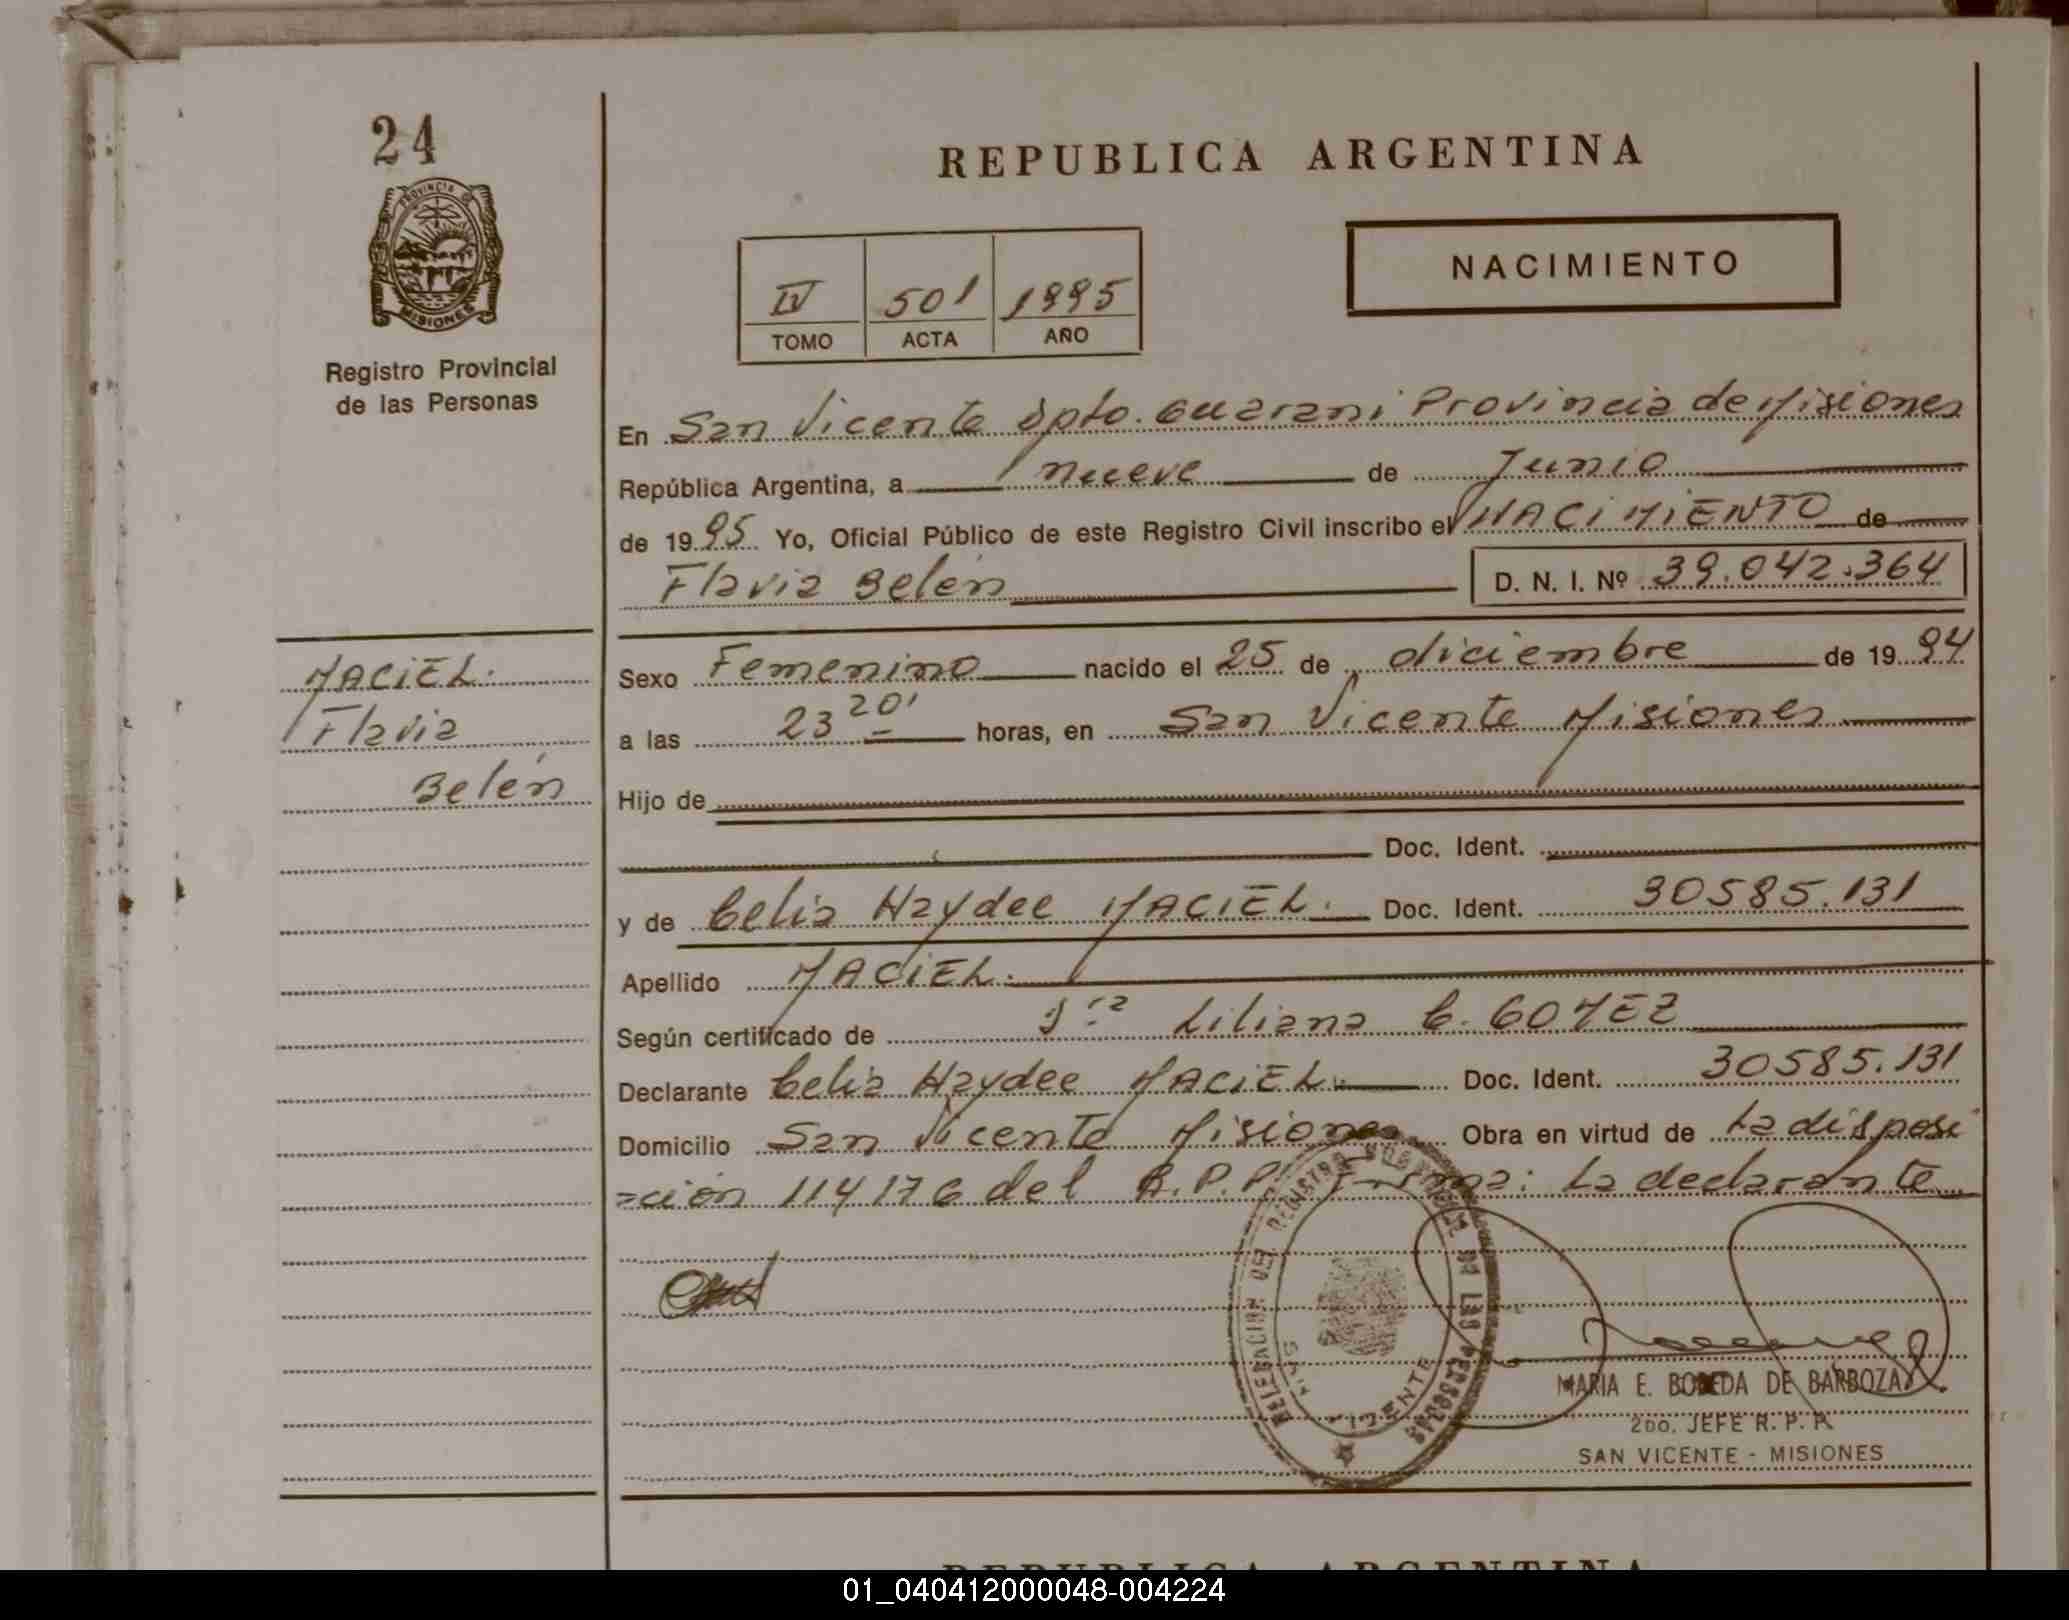 24
PROVINCIA DE
MISIONES
Registro Provincial
de las Personas
REPUBLICA ARGENTINA
NACIMIENTO
IV 501 1995
TOMO ACTA AÑO
En San Vicente Dpto. Guarani Provincia de Misiones
República Argentina, a nueve de Junio
de 1995 Yo, Oficial Público de este Registro Civil inscribo el NACIMIENTO de
Flavia Belén D. N. I. Nº 39.042.364
MACIEL.
Flavia
Belén
Sexo Femenino nacido el 25 de diciembre de 1994
a las 23 20' horas, en San Vicente Misiones
Hijo de
Doc. Ident.
y de Celia Haydee MACIEL. Doc. Ident. 30585.131
Apellido MACIEL.
Según certificado de Dra Liliana C. GOMEZ
Declarante Celia Haydee MACIEL. Doc. Ident. 30585.131
Domicilio San Vicente Misiones Obra en virtud de La disposi
=ción 114176 del R.P.P. Firma: La declarante
DELEGACION DEL REGISTRO PROVINCIAL DE LAS PERSONAS
SAN VICENTE
MARIA E. BOBEDA DE BARBOZA
2DO. JEFE R. P. P.
SAN VICENTE - MISIONES
REPUBLICA ARGENTINA
01_040412000048-004224